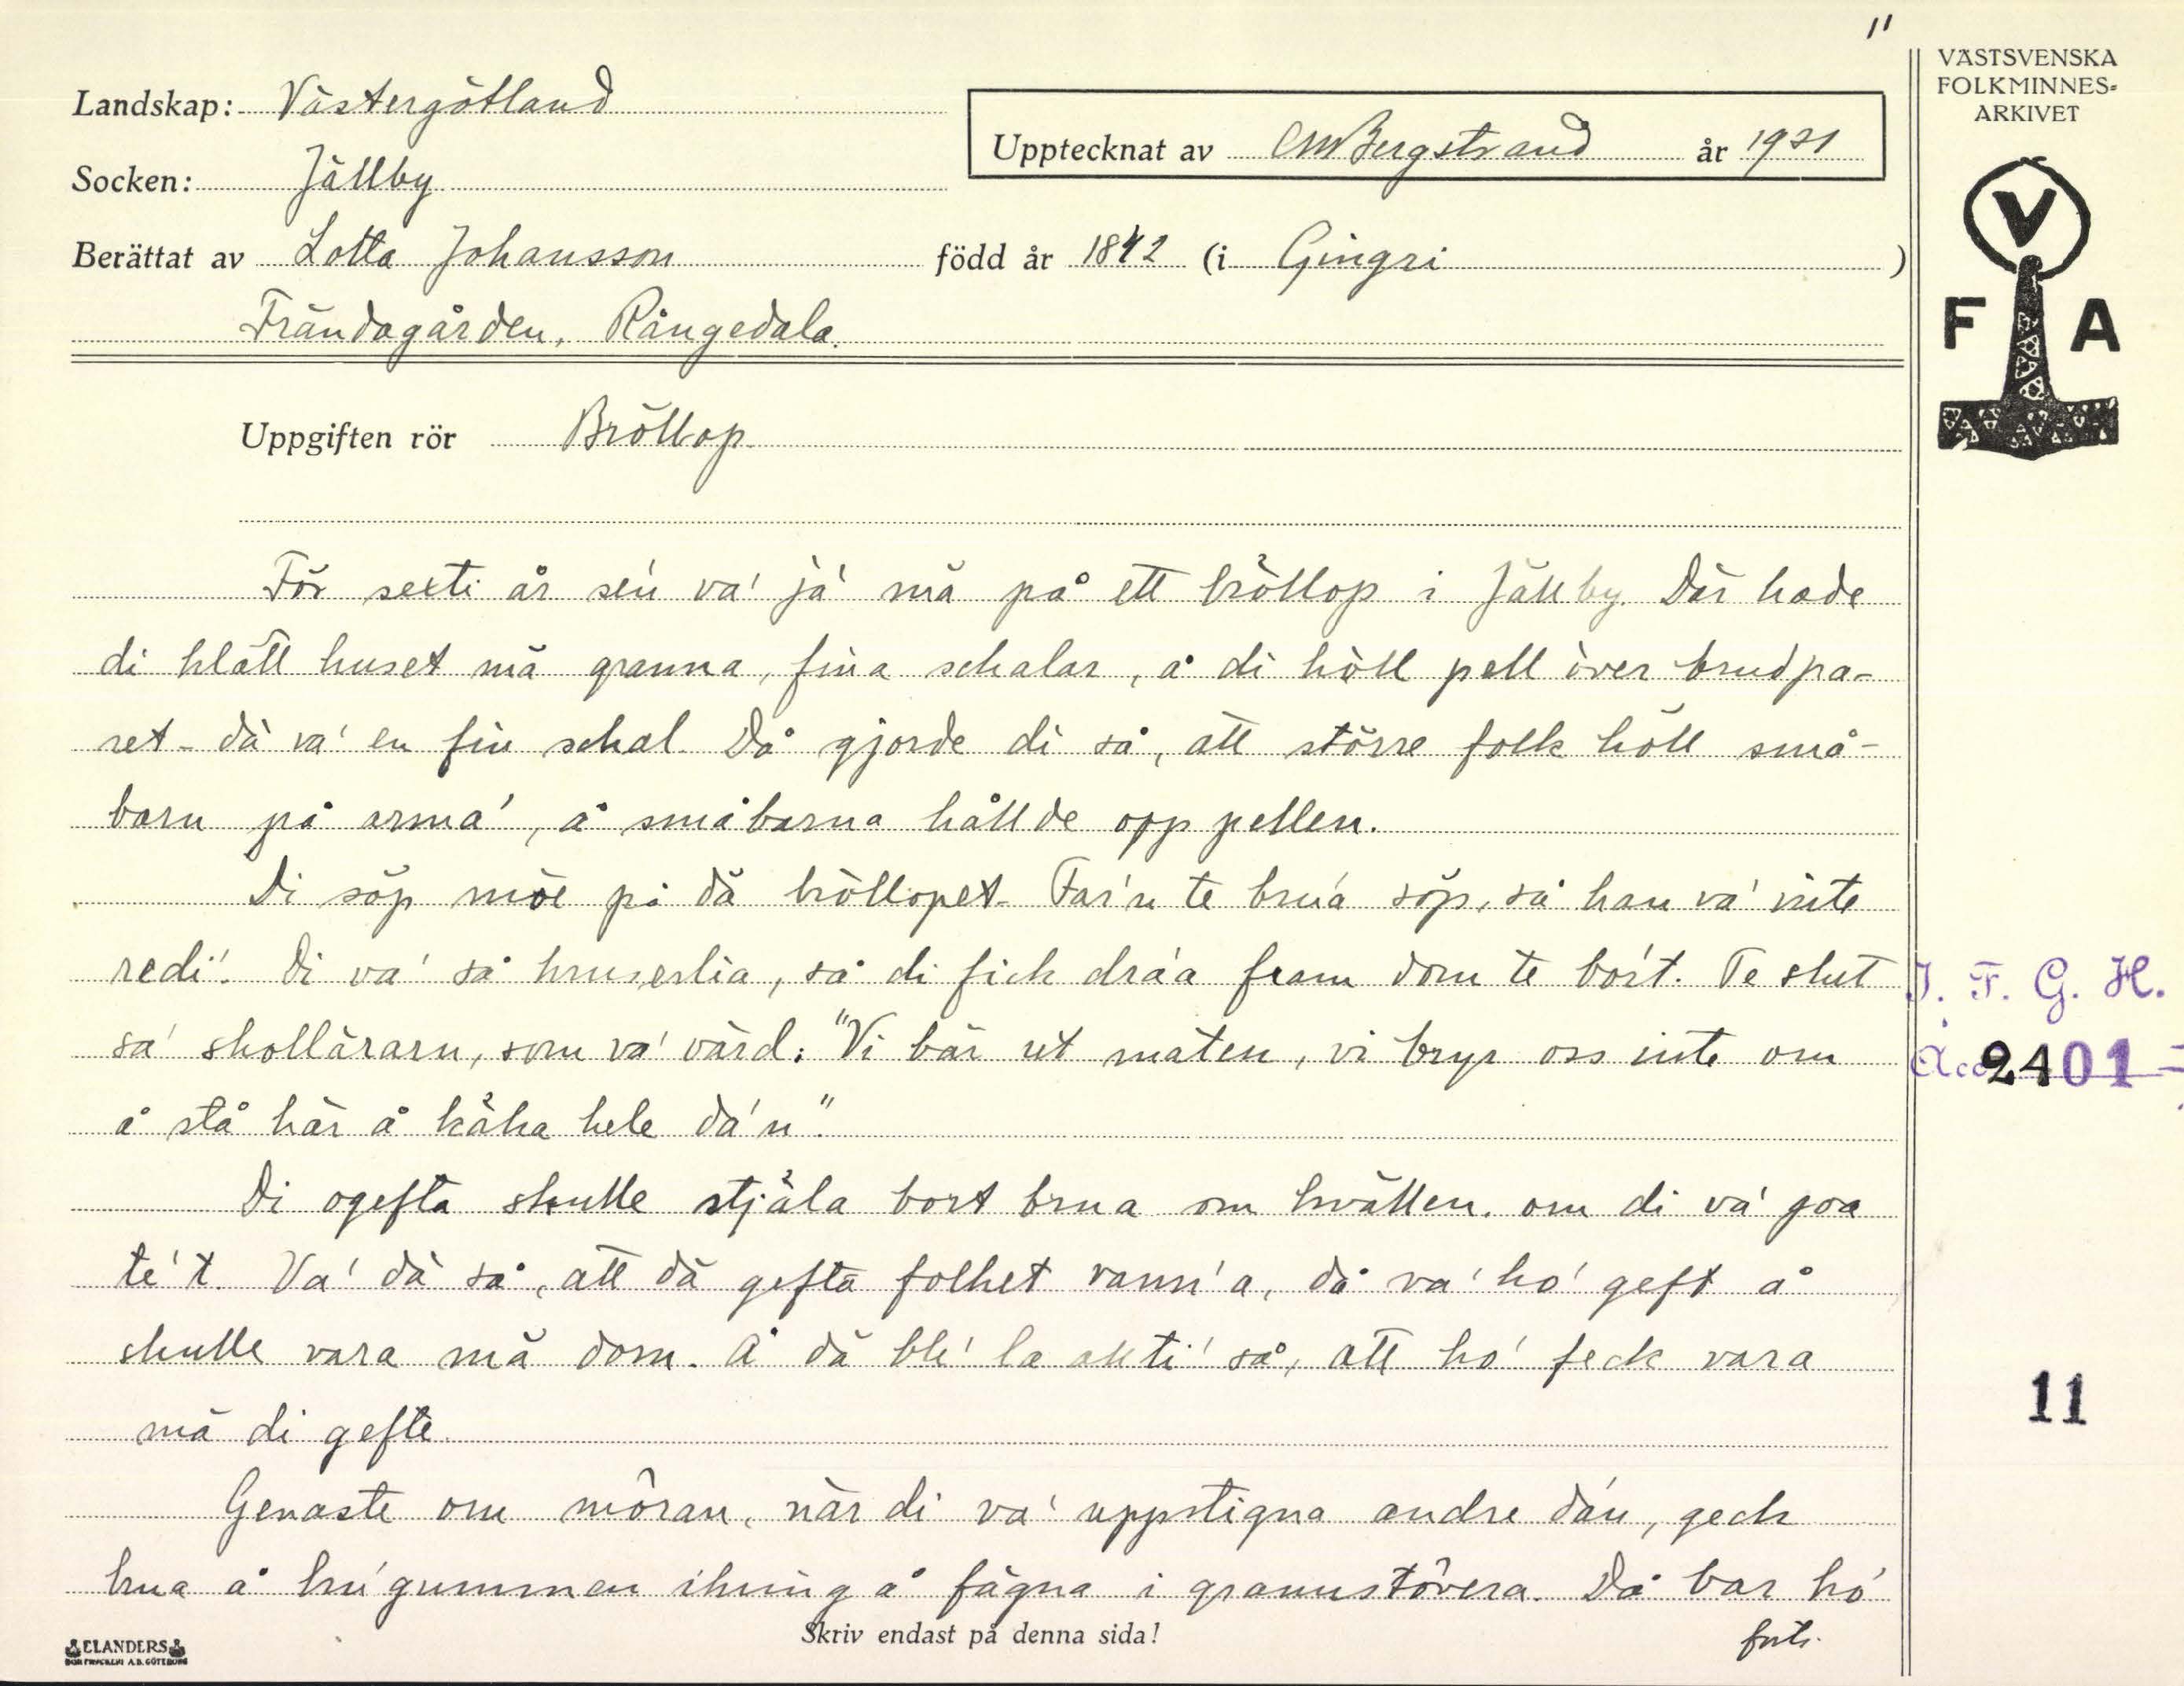 11
VÄSTSVENSKA
FOLKMINNES-
ARKIVET
Landskap: Västergötland
Upptecknat av CMBergstrand år 1921
Socken: Jällby
Berättat av Lotta Johansson född år 1842 (i Gingri )
Frändagården, Rångedala.
V
F A
Uppgiften rör Bröllop
För sexti år se'n va' ja' mä på ett bröllop i Jällby. Där hade
di klätt huset mä granna, fina schalar, å di höll pell över brudpa-
ret - dä va' en fin schal. Då gjorde di så, att större folk höll små-
barn på arma', å småbarna hållde opp pellen.
Di söp möe på dä bröllopet. Far'n te bru'a söp, så han va' inte
redi'. Di va' så kruserlia, så di fick dra'a fram dom te bo'rt. Te slut
sa' skollärarn, som va' värd: "Vi bär ut maten, vi bryr oss inte om
å stå här å kåka hele da'n."
Di ogefta skulle stjäla bort brua om kvällen, om di va' goa
te't. Va' dä så, att dä gefta folket vann'a, då va' ho' geft å
skulle vara mä dom. Å dä ble' la allti' så, att ho' feck vara
mä di gefte.
Genaste om môran, när di va' uppstigna andre da'n, geck
brua å brú'gummen ikring å fägna i grannstôvera. Då bar ho'
forts.
Skriv endast på denna sida!
I. F. G. H.
Acc 2401
11
ELANDERS
BOKTRYCKERI A.B. GÖTEBORG